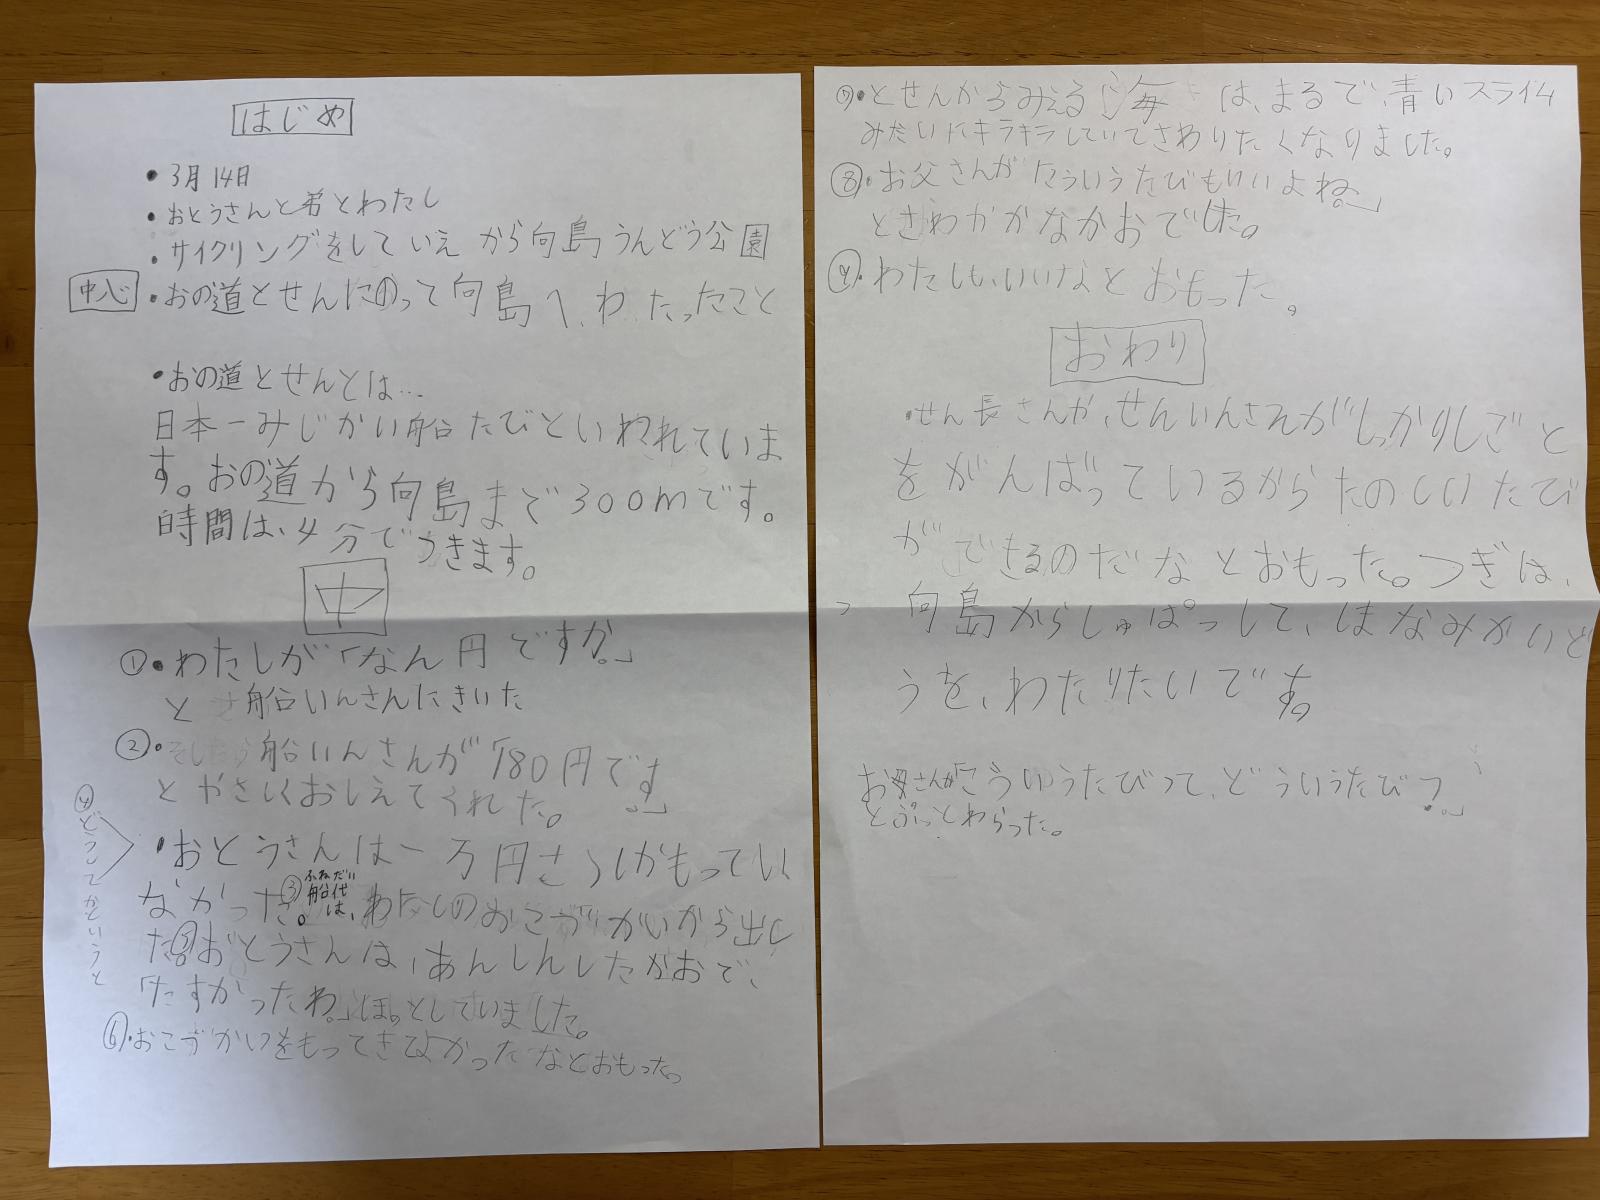 はじめ
・3月14日
・おとうさんと君とわたし
・サイクリングをしていえから向島うんどう公園
中心・おの道とせんにのって向島へ、わたったこと
・おの道とせんとは…
日本一みじかい船たびといわれていま
す。おの道から向島まで300mです。
時間は、4分でつきます。
中
①・わたしが「なん円ですか。」
と船いんさんにきいた
②・そしたら船いんさんが「180円です。」
とやさしくおしえてくれた。
④どうしてかというと
・おとうさんは一万円さつしかもってい
なかった。③船代は、わたしのおこづかいから出し
ふねだい
た。⑤おとうさんは、あんしんしたかおで、
「たすかったわ。」ほっとしていました。
⑥・おこづかいをもってきてよかったなとおもった。
⑦・とせんからみえる海は、まるで、青いスライム
みたいにキラキラしていてさわりたくなりました。
⑧・お父さんが「こういうたびもいいよね。」
とさわかがなかおでした。
⑨・わたしも、いいなとおもった。
おわり
・せん長さんや、せんいんさんがしっかりしごと
をがんばっているからたのしいたび
ができるのだなとおもった。つぎは、
向島からしゅぱっして、はなみかいど
うを、わたりたいです。
お母さんが「こういうたびって、どういうたび？。」
とぷっとわらった。